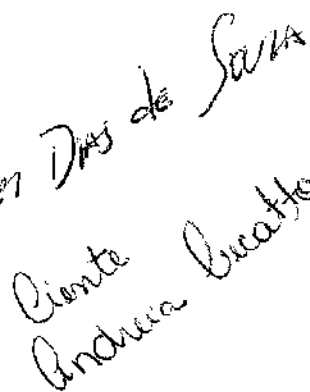 Dias de Souza
Ciente
Andreia